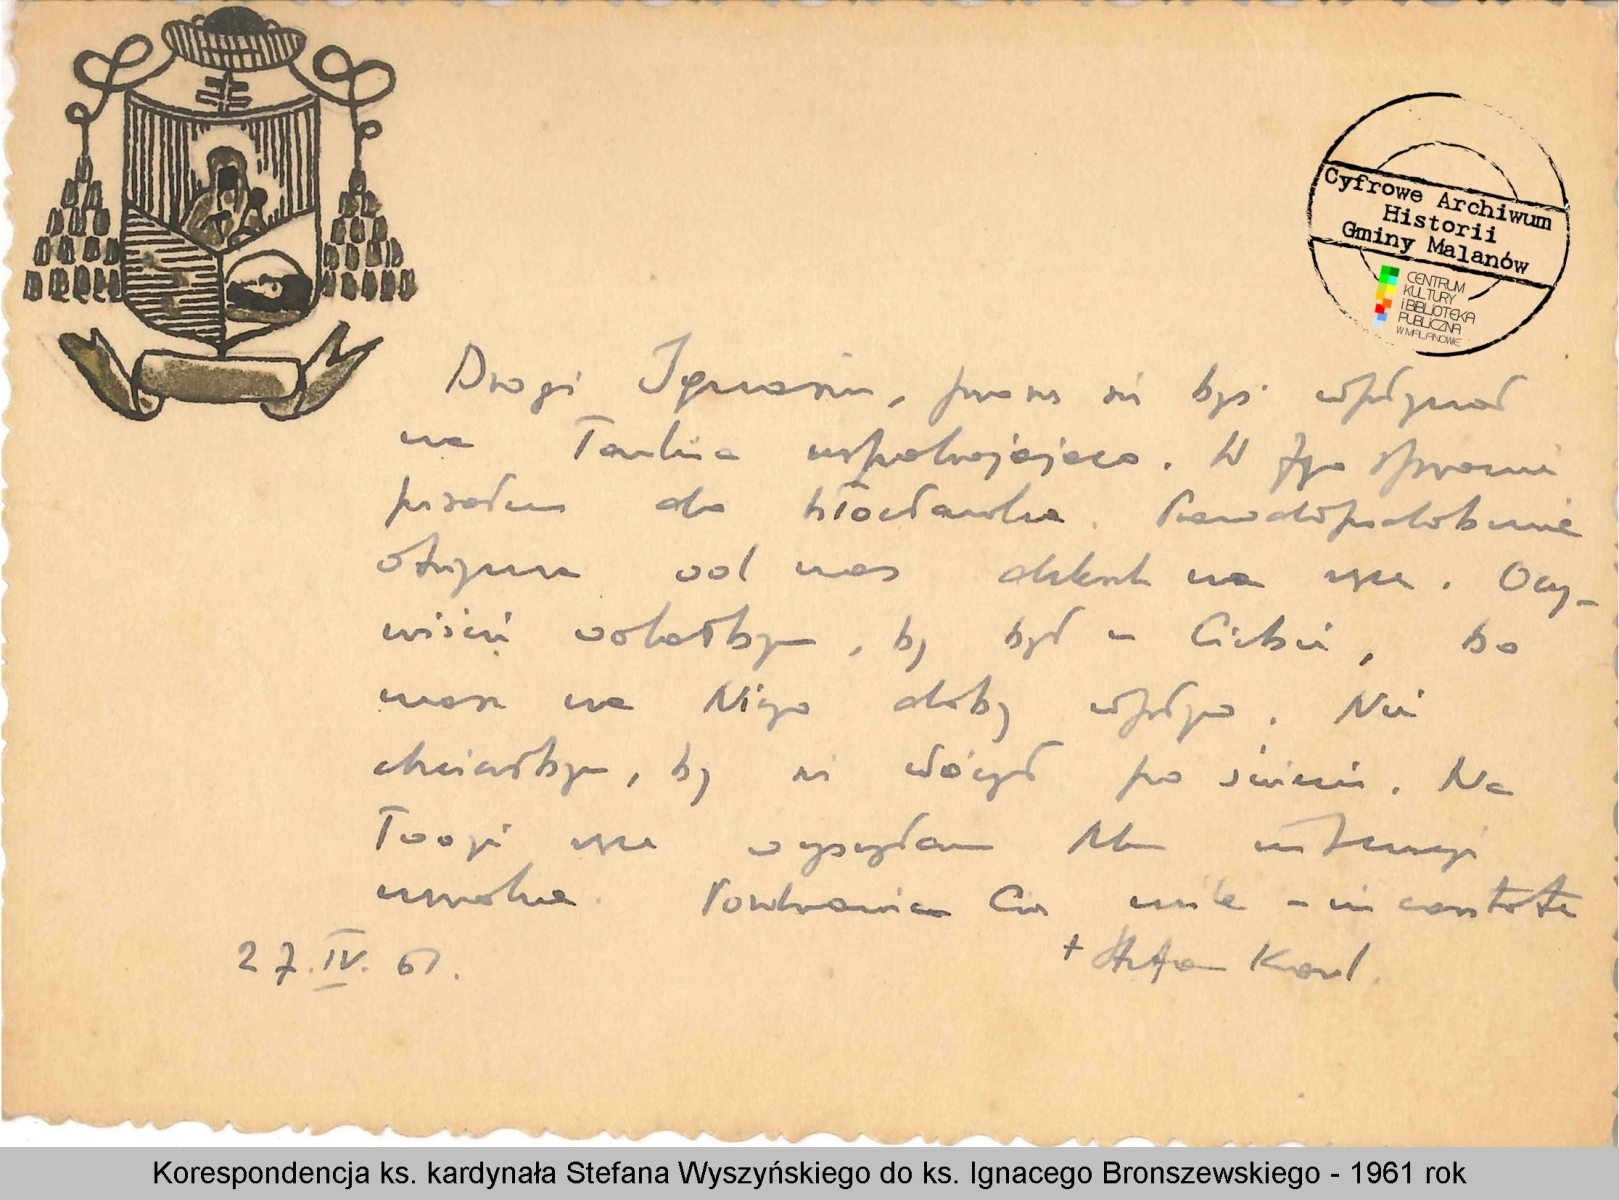 Cyfrowe Archiwum
Historii
Gminy Malanów
CENTRUM
KULTURY
i BIBLIOTEKA
PUBLICZNA
W MALANOWIE
Drogi Ignasiu, prosze się byś wpłynął
na uspokajająco. W tej sprawie
pisałem do Włocławka. Prawdopodobnie
otrzyma od nas dekret na ręce. Oczy-
wiście wolałbym, by był u Ciebie, bo
masz na Niego dobry wpływ. Nie
chciałbym, by się włóczył po świecie. Na
Twoje ręce wysyłam Mu intencje
mszalne. Pozdrawiam Cię mile - in caritate
27.IV.61. + Stefan Kard.
Korespondencja ks. kardynała Stefana Wyszyńskiego do ks. Ignacego Bronszewskiego - 1961 rok